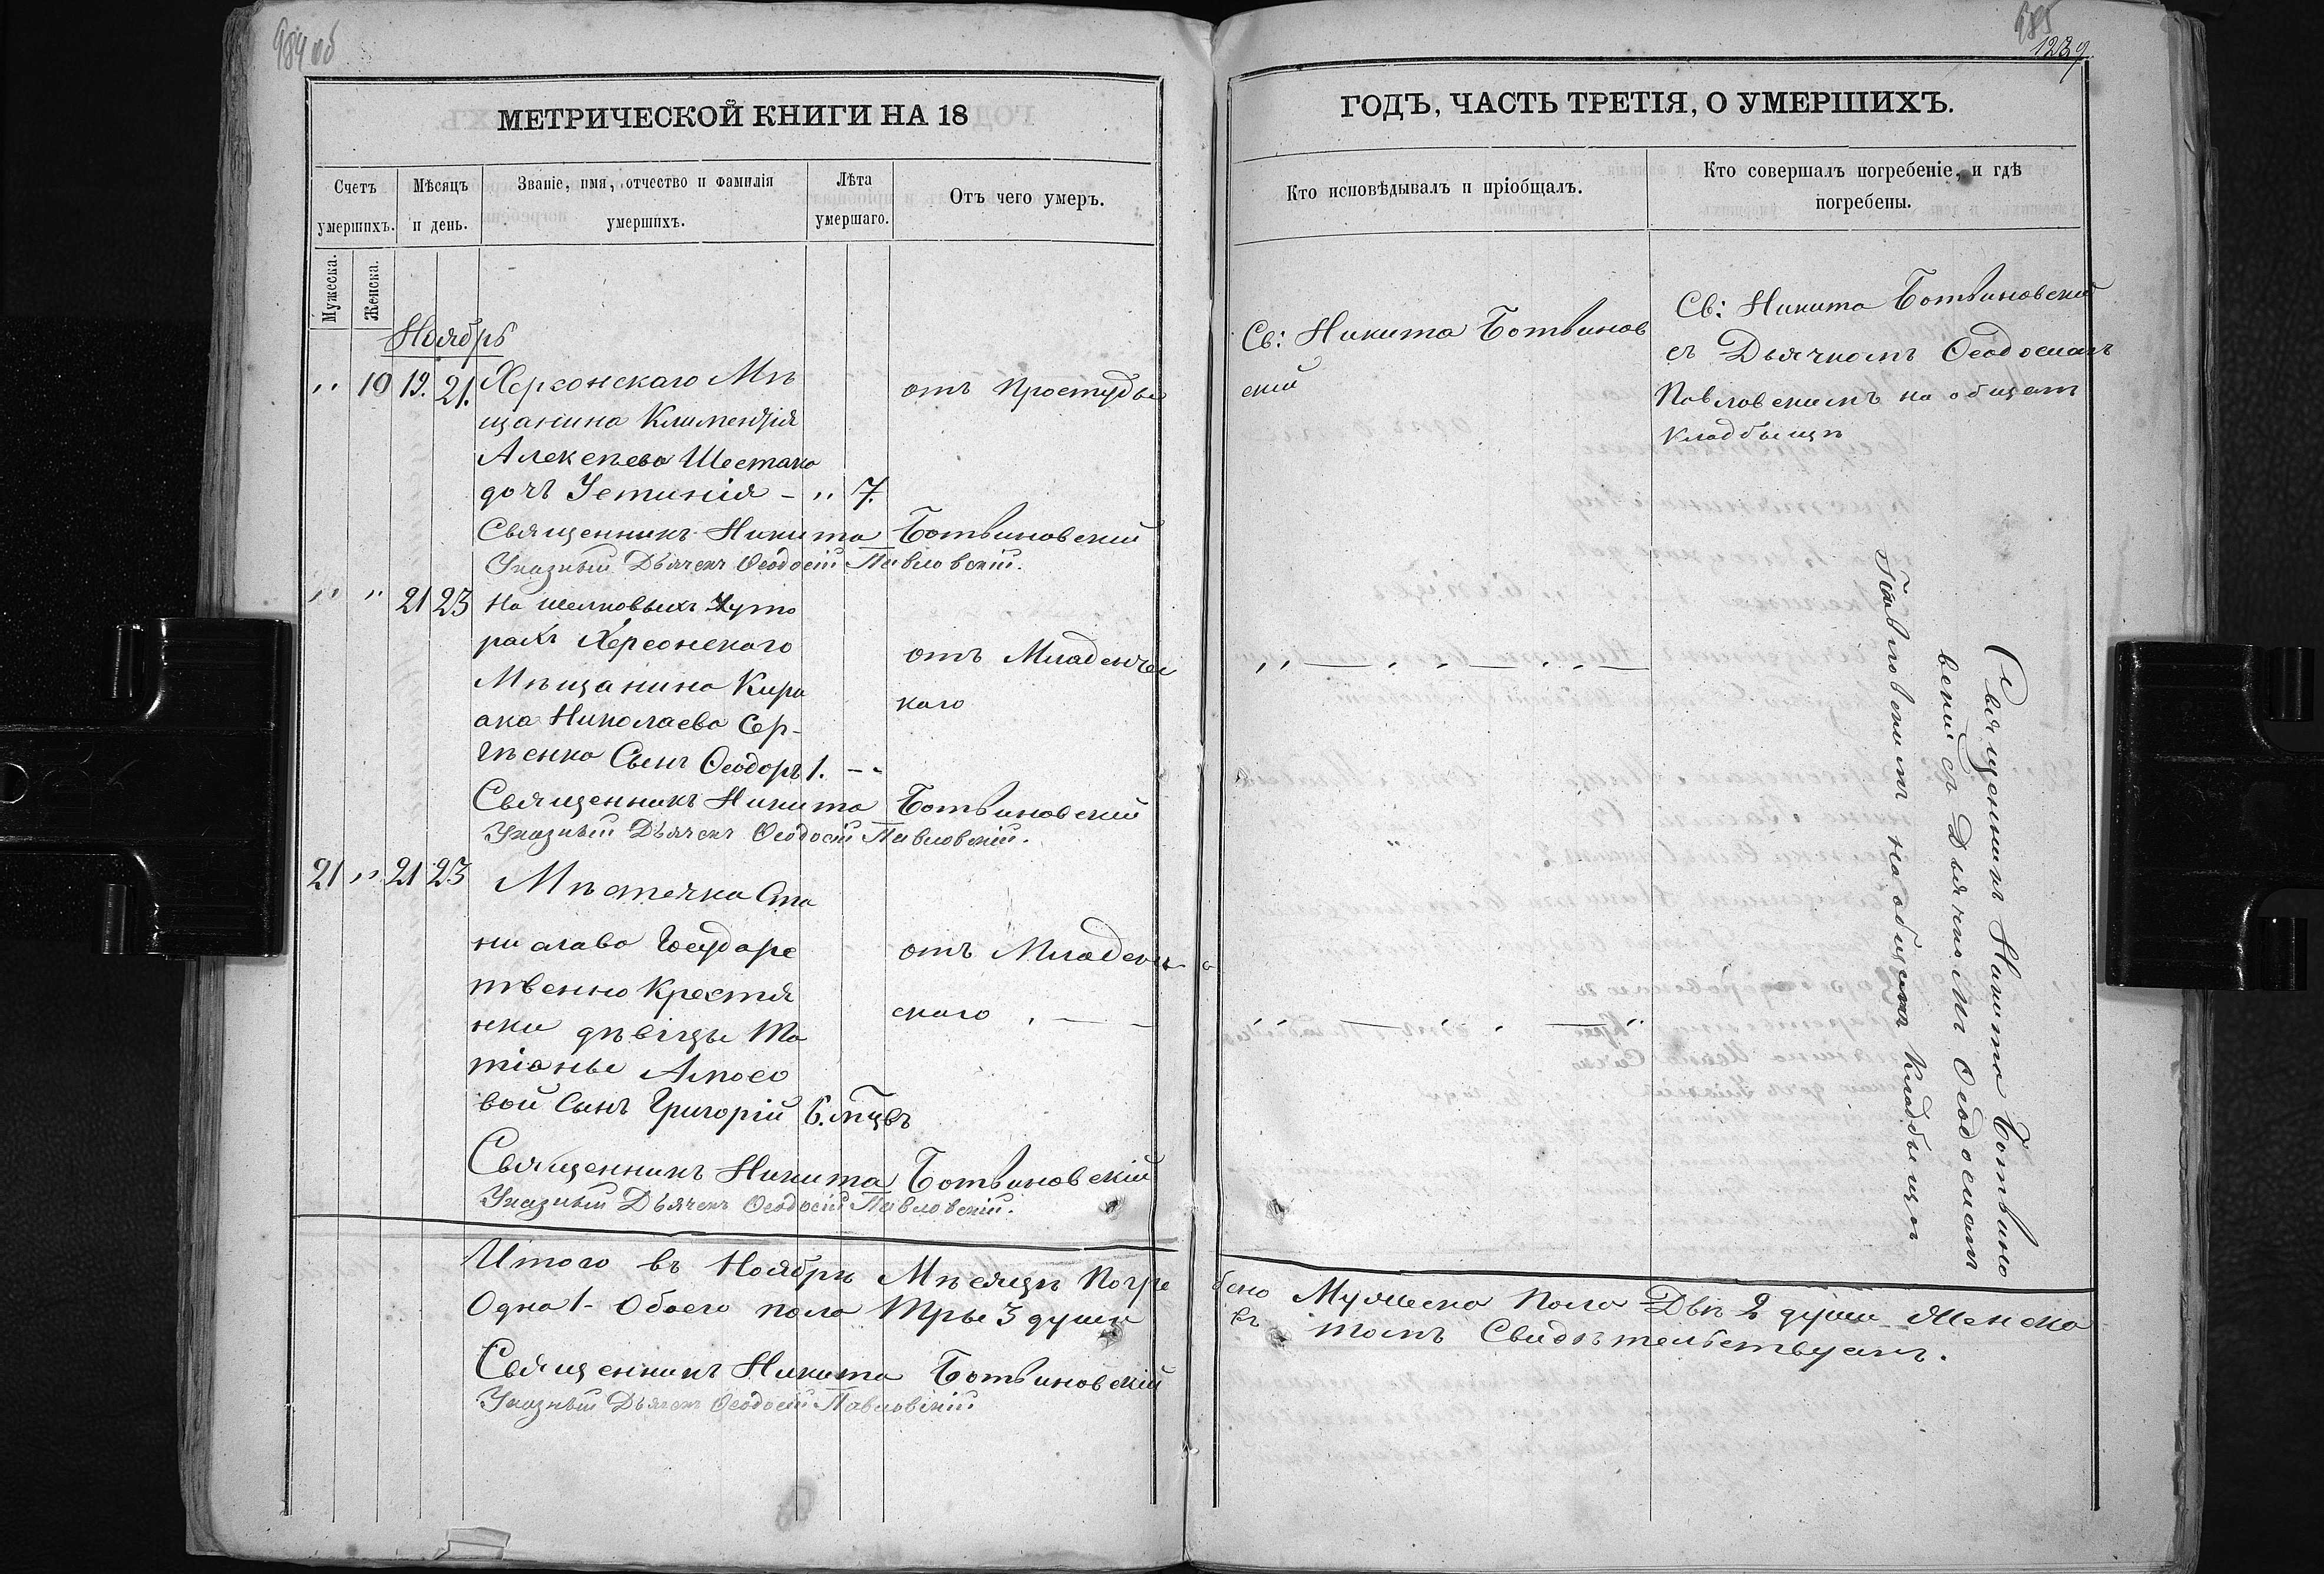 984 об
МЕТРИЧЕСКОЙ КНИГИ НА 18
Счетъ умершихъ.
Мѣсяцъ и день.
Званіе, имя, отчество и фамилія умершихъ.
Лѣта умершаго.
Отъ чего умеръ.
Мужеска.
Женска.
Ноябрь
" 10 19. 21. Херсонскаго Мѣ
щанина Климентія
Алексѣева Шестако
дочь Устинія - " 7.
отъ Простуды
Священникъ Никита Ботвиновскій
Указный Дьячекъ Ѳеодосій Павловскій.
" " 21 23 На шелковыхъ Хуто
рахъ Херсонского
Мѣщанина Кирі
ака Николаева Сер-
гѣенко Сынъ Ѳеодоръ 1. --
отъ Младенчес
каго
Священникъ Никита Ботвиновскій
Указный Дьячекъ Ѳеодосій Павловскій.
21 " 21 23 Мѣстечка Ста
нислава Государс
твенно Крестья
нки дѣвіцы Та
тіаны Амосо
вой Сынъ Григорій 6. мцвъ
отъ Младенч
скаго . — —
Священникъ Никита Ботвиновскій
Указный Дьячекъ Ѳеодосій Павловскій.
Итого въ Ноябрѣ Мѣсяцѣ Погре
Одна 1 - Обоего пола Тры 3 души
Священникъ Никита Ботвиновскій
Указный Дьячекъ Ѳеодосій Павловскій
985
1239
ГОДЪ, ЧАСТЬ ТРЕТІЯ, О УМЕРШИХЪ.
Кто исповѣдывалъ и пріобщалъ.
Кто совершалъ погребеніе, и гдѣ погребены.
Св: Никита Ботвинов
скій
Св: Никита Ботвиновскій
съ Дьячкомъ Ѳеодосіемъ
Павловскимъ на общемъ
Кладбыщѣ
Священникъ Никита Ботвино
вскій съ Дьячкомъ Ѳеодосіемъ
Павловскимъ на общемъ Кладбыщѣ
бено Мужеска Пола Двѣ 2 души Женска
въ томъ Свидѣтельствуемъ.